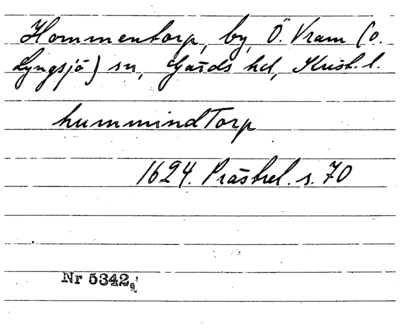 Hommentorp, by, Ö. Vram (o.
Lyngsjö) sn, Gärds hd, Krist. l.
hummindTorp
1624. Prästrel. s. 70
Nr 5342